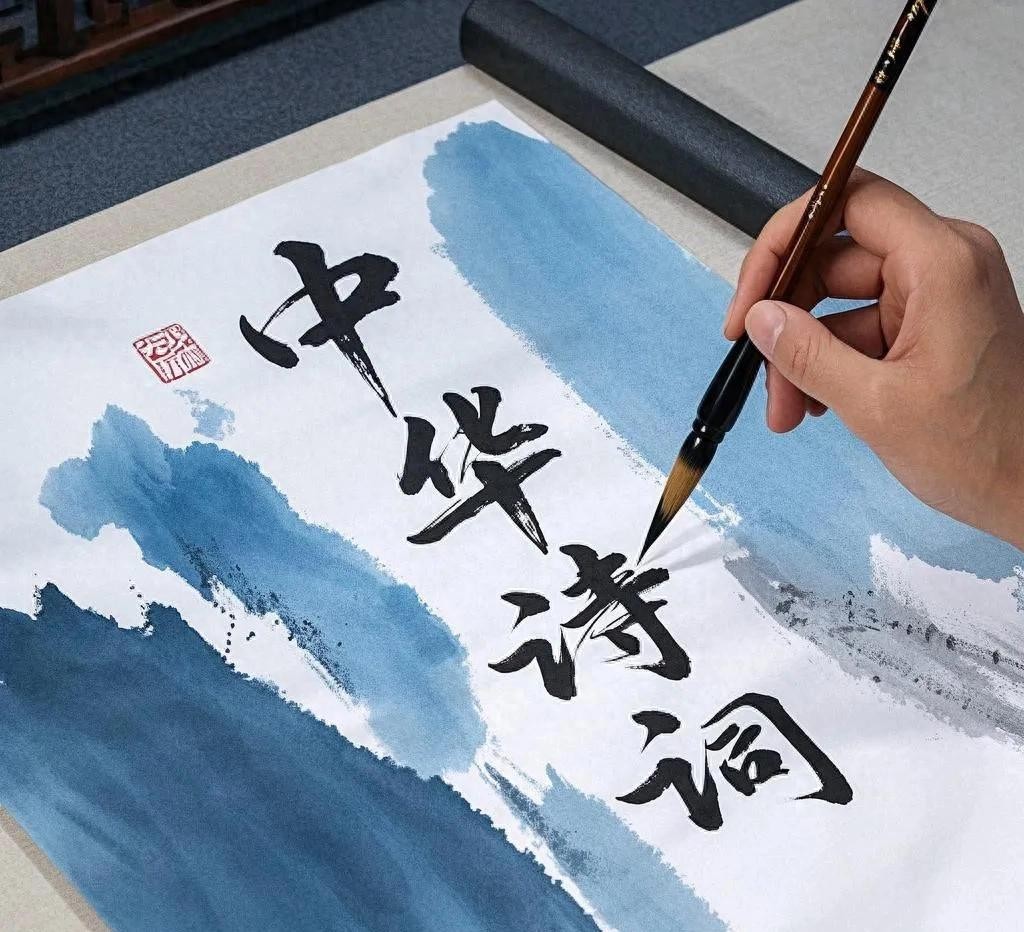 中华诗词